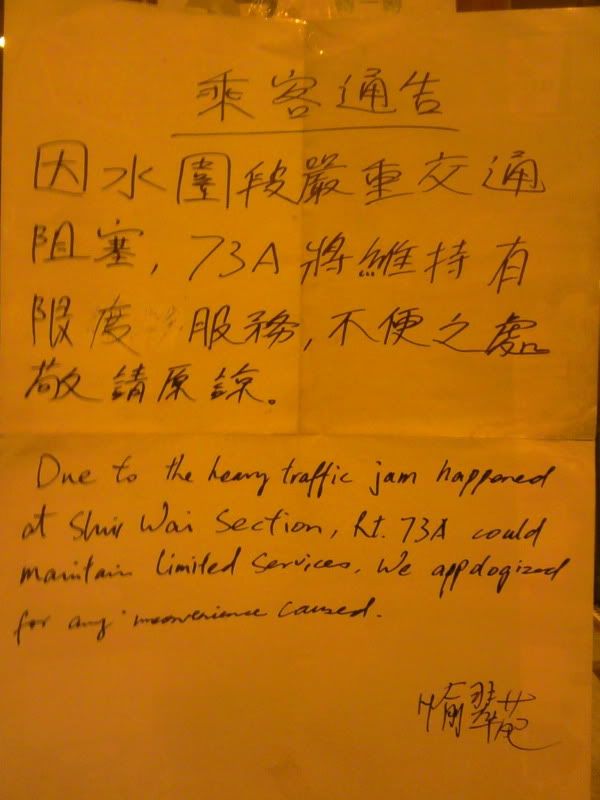 乘客通告
因水圍段嚴重交通
阻塞, 73A將維持有
限度 服務,不便之處
敬請原諒。
Due to the heavy traffic jam happened
at Shui Wai Section, Rt. 73A could
maintain limited services. We appologized
for any inconvenience caused.
愉翠苑